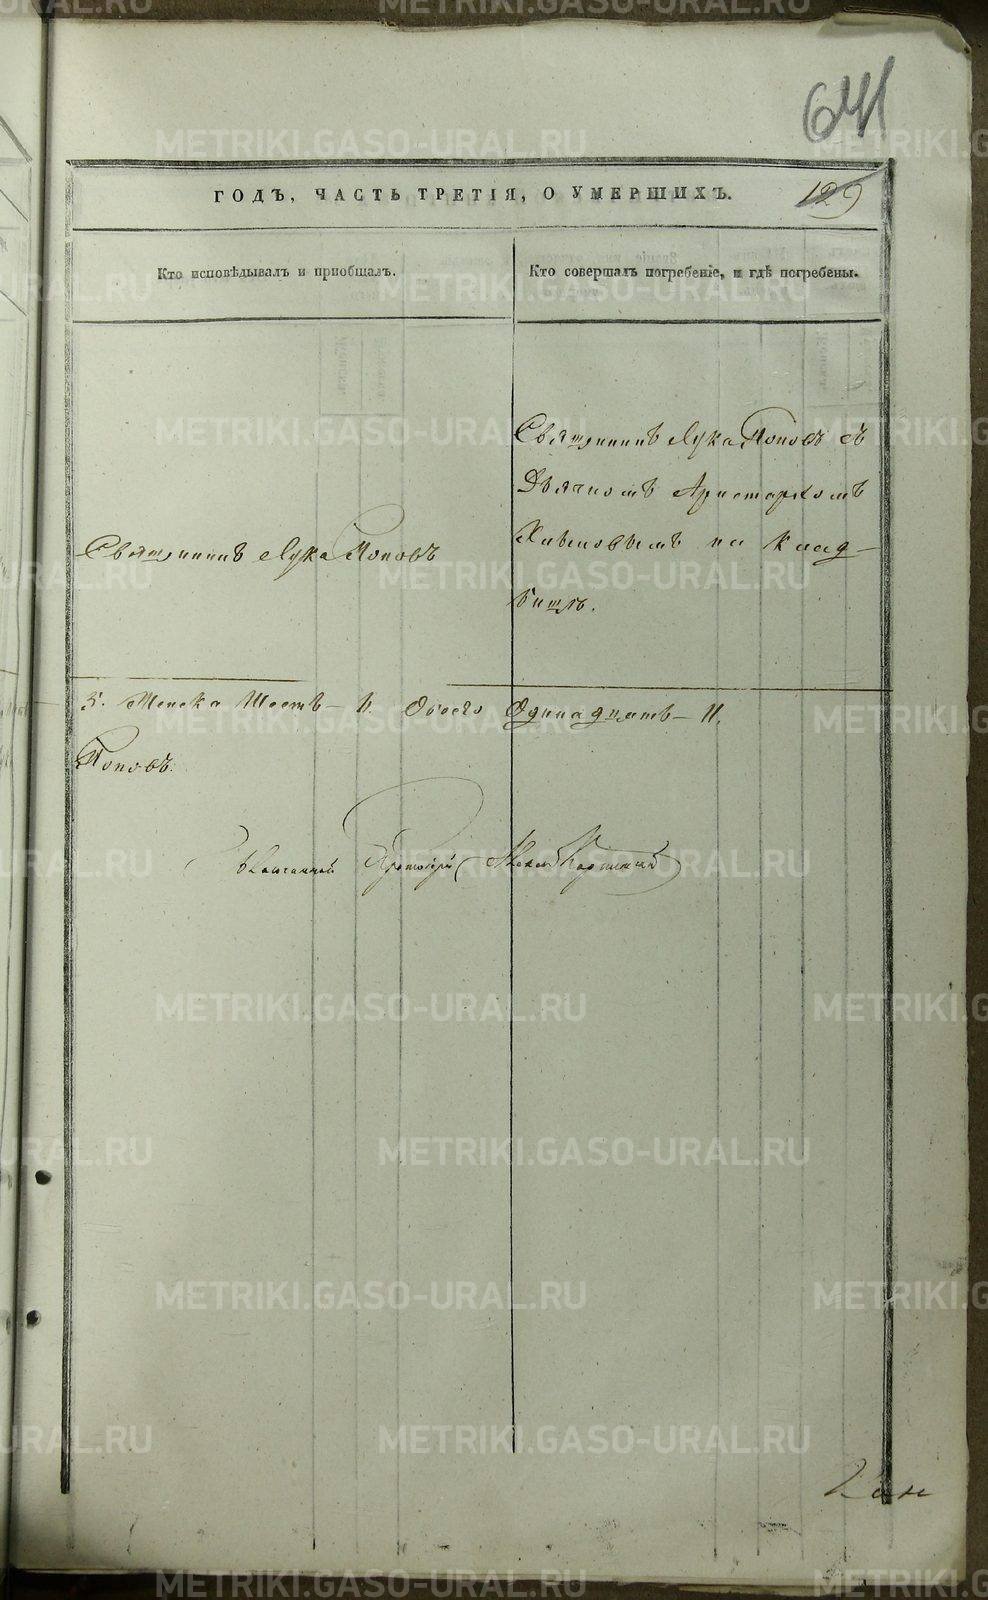 641
ГОДЪ, ЧАСТЬ ТРЕТІЯ, О УМЕРШИХЪ.
129
Кто исповѣдывалъ и приобщалъ.
Кто совершалъ погребеніе, и гдѣ погребены.
Священникъ Лука Поповъ
Священникъ Лука Поповъ съ
Дьячкомъ Аристархомъ
на клад-
бищѣ.
5. Женска Шесть - 6. Обоего Одинадцать - 11.
Поповъ.
Благочинный Протоіерей
METRIKI.GASO-URAL.RU